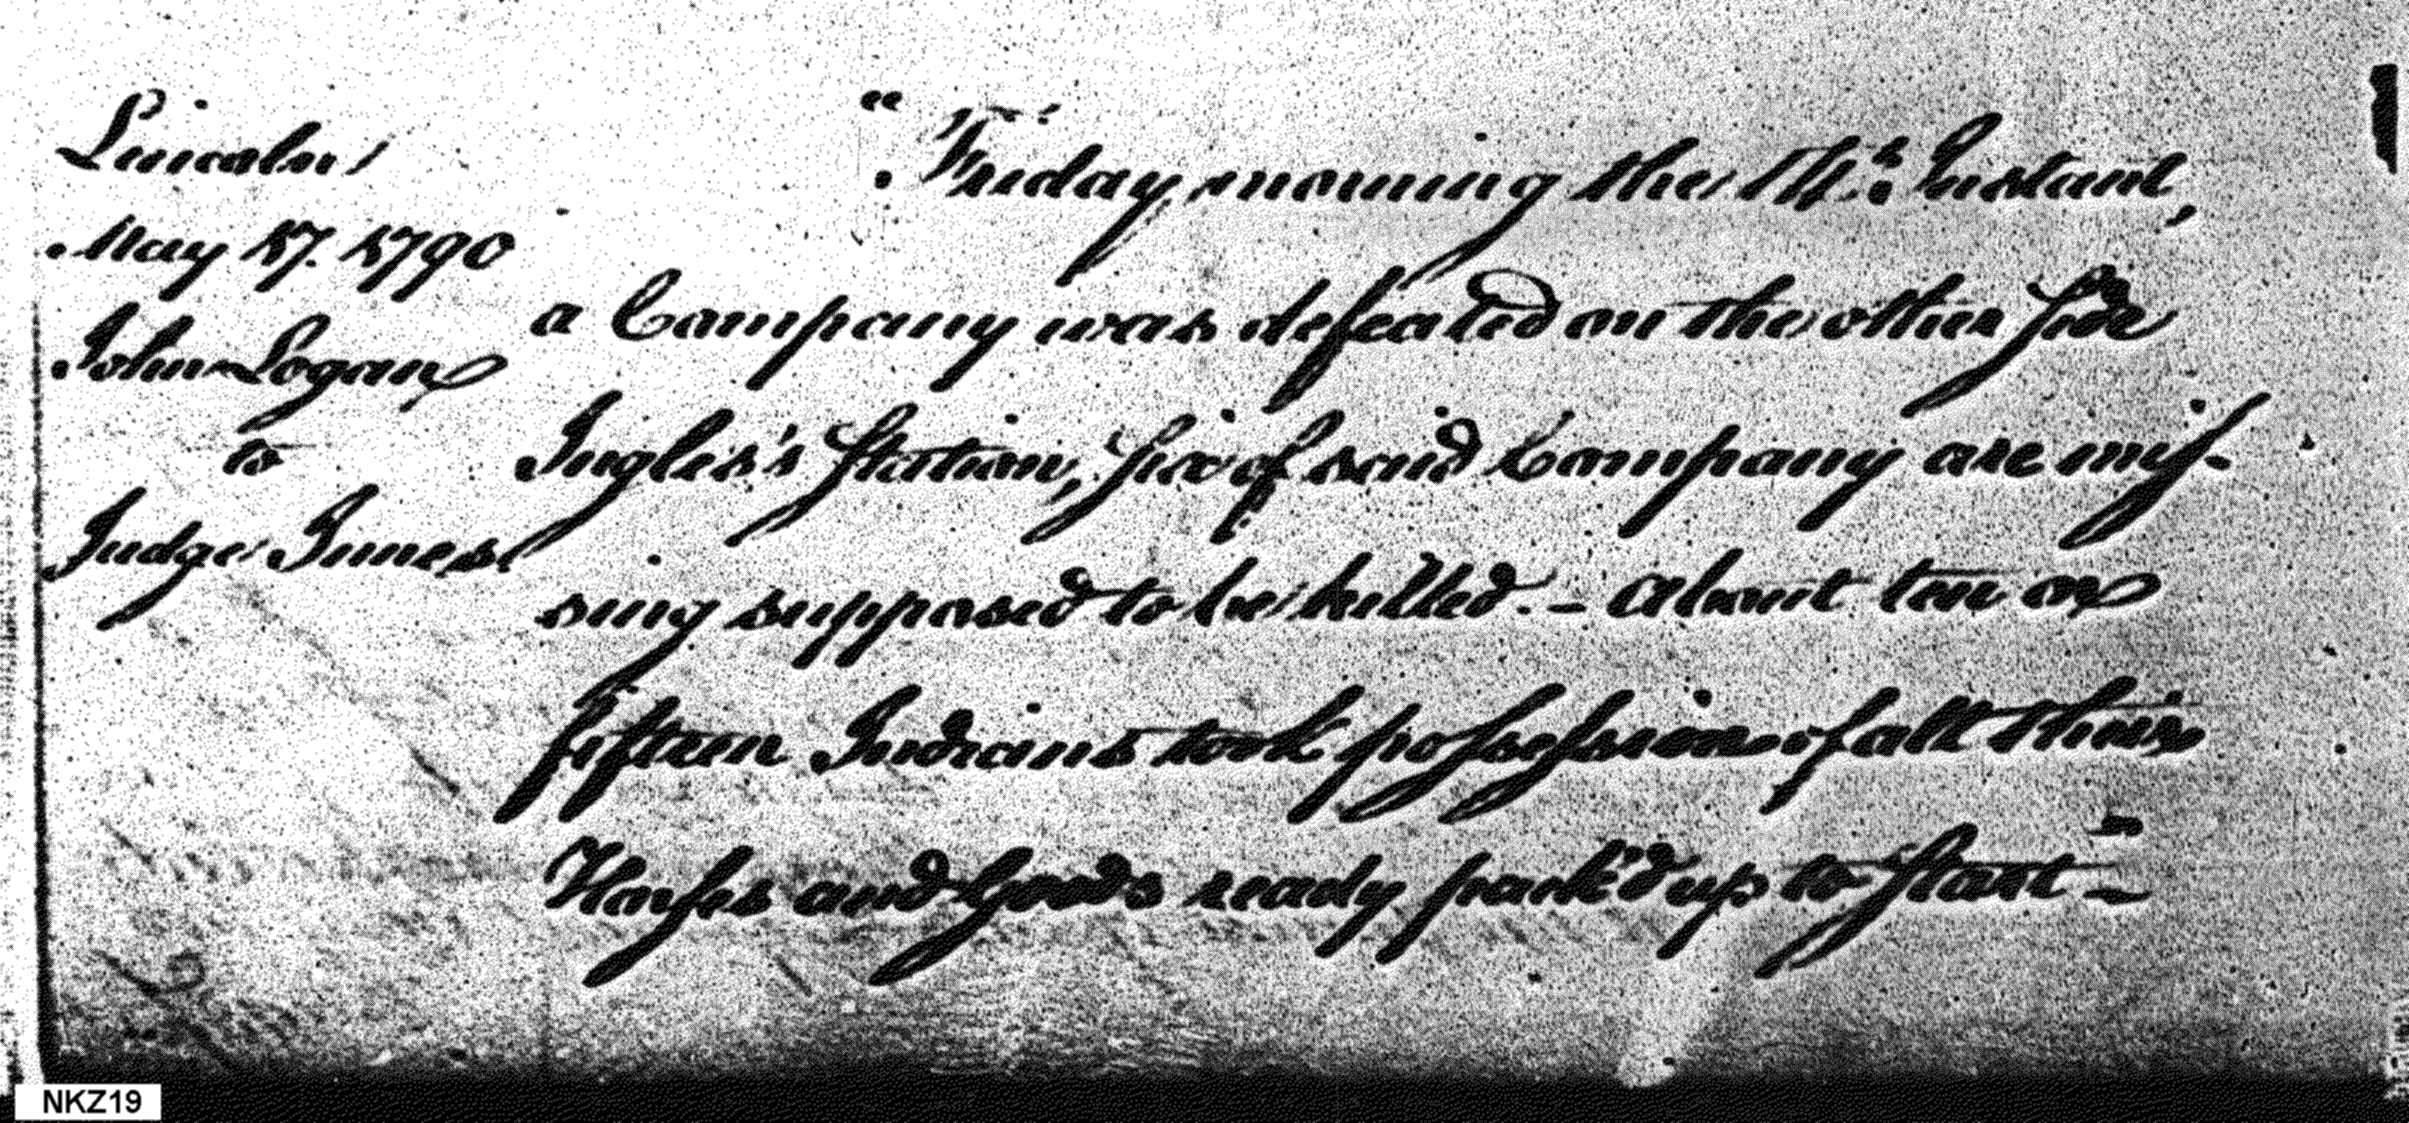 Lincoln
May 17. 1790
John Logan
to
Judge Innes
“Friday morning the 14th. Instant,
a Company was defeated on the other Side
Ingles's Station, Six of said Company are mis-
sing supposed to be killed. – About ten or
fifteen Indians took possession of all their
Horses and Goods ready pack'd up to Start –
NKZ19